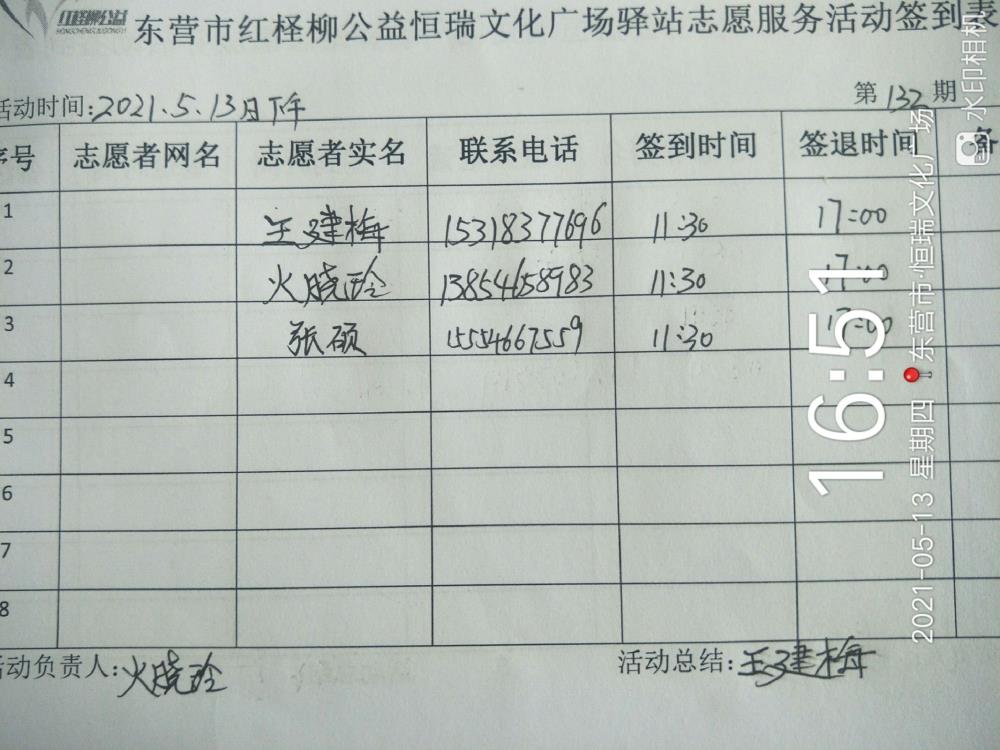 红柽柳公益
HONGCHENGLIUGONGYI
东营市红柽柳公益恒瑞文化广场驿站志愿服务活动签到表
活动时间:2021.5.13日下午 第132期
序号 志愿者网名 志愿者实名 联系电话 签到时间 签退时间 备
1 王建梅 15318377696 11:30 17:00
2 火晓玲 13854658983 11:30 17:00
3 张硕 15554667559 11:30 17:00
4
5
6
7
8
活动负责人:火晓玲 活动总结:王建梅
16:51
2021-05-13 星期四 东营市·恒瑞文化广场
水印相机